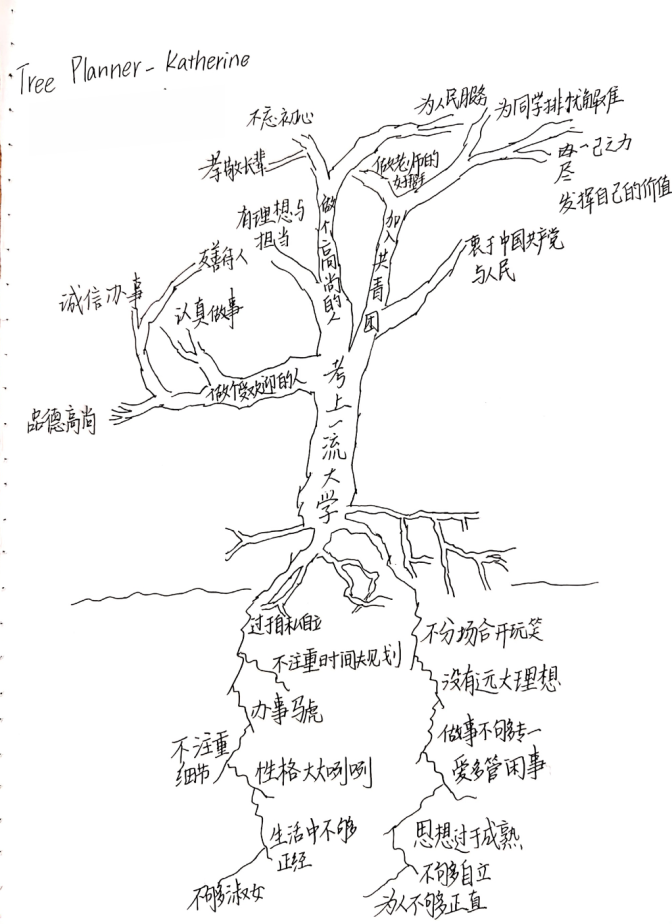 Tree Planner - Katherine
不忘初心
为人民服务
为同学排忧解难
孝敬长辈
做老师的
好帮手
尽
一己之力
发挥自己的价值
有理想与
担当
做个高尚的人
加入共青团
衷于中国共产党
与人民
友善待人
诚信办事
认真做事
做个受欢迎的人
品德高尚
考上一流大学
过于自私自立
不分场合开玩笑
不注重时间规划
没有远大理想
办事马虎
不注重
细节
做事不够专一
性格大大咧咧
爱多管闲事
生活中不够
正经
思想过于成熟
不够自立
不够淑女
为人不够正直